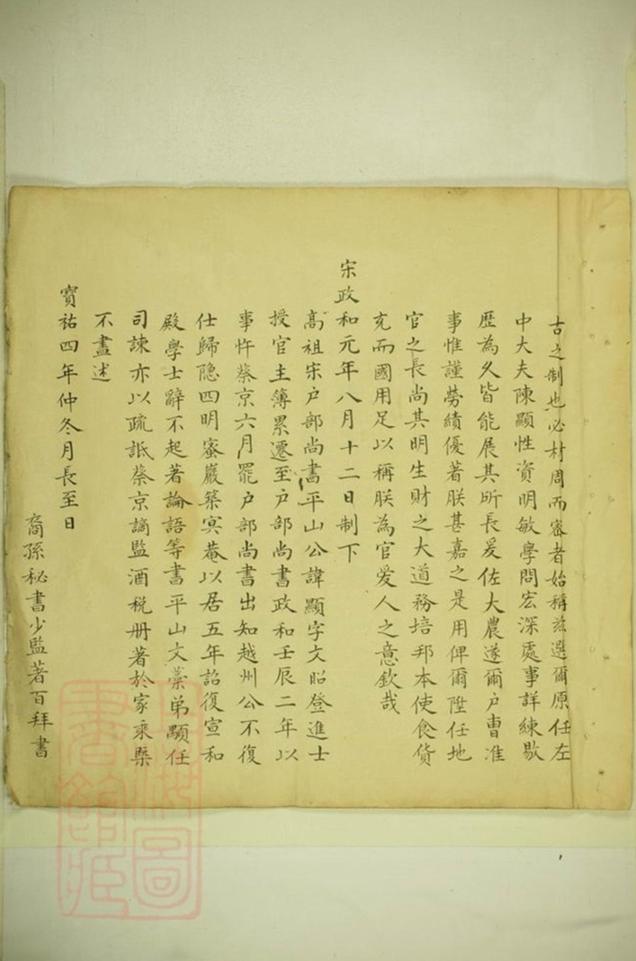 古之制也必材周而審者始稱兹選爾原任左
中大夫陳顯性資明敏學問宏深處事詳練敭
歷為久皆能展其所長爰佐大農遂爾户曺准
事惟謹勞績優著朕甚嘉之是用俾爾陞任地
官之長尚其明生財之大道務培邦本使食貨
充而國用足以稱朕為官爱人之意欽哉
宋政和元年八月十二日制下
髙祖宋户部尚書平山公諱顯字文昭登進士
授官主簿累遷至户部尚書政和壬辰二年以
事忤蔡京六月罷户部尚書出知越州公不復
仕歸隐四明宻巖築㝠菴以居五年詔復宣和
殿學士辭不起著論語等書平山文藁弟顒任
司諫亦以疏詆蔡京謫監酒税册著於家乘槩
不盡述
寳祐四年仲冬月長至日
裔孫秘書少監著百拜書